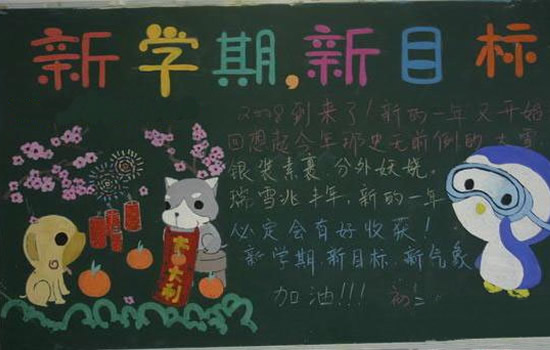 新学期,新目标
2008到来了！新的一年又开始
回想起今年那史无前例的大雪
银装素裹 分外妖娆。
瑞雪兆丰年，新的一年
必定会有好收获！
新学期 新目标 新气象
加油!!!
大利